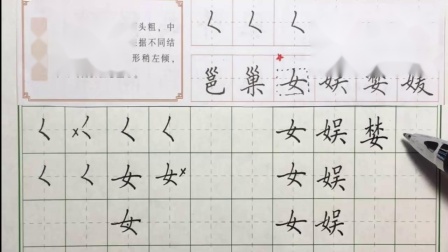 头粗，中
据不同结
形稍左倾，
ㄑ ㄑ ㄑ
邕 巢 女 娱 婪
ㄑ ×ㄑ ㄑ ㄑ 女 娱 婪
ㄑ ㄑ 女 女× 女 娱
女 女 娱